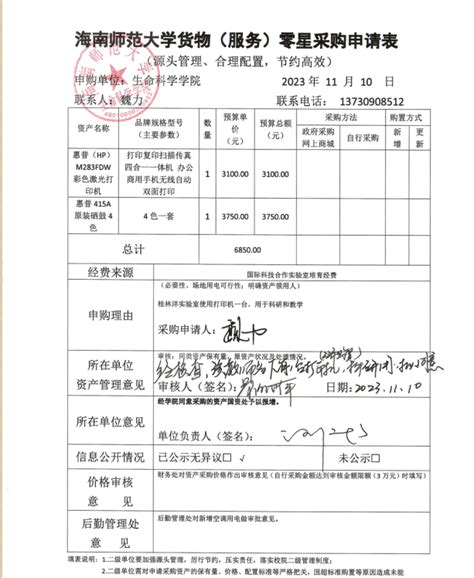 海南师范大学货物（服务）零星采购申请表
（源头管理、合理配置，节约高效）
申购单位：生命科学学院 2023 年 11 月 10 日
联系人：魏力 联系电话：13730908512
资产名称 品牌规格型号（主要参数） 数量 预算单价（元） 预算总额（元） 采购方法 购置方式
政府采购网上商城 自行采购 新增 更新
惠普（HP）M283FDW 彩色激光打印机 打印复印扫描传真四合一一体机 办公商用手机无线自动双面打印 1 3100.00 3100.00
惠普 415A 原装硒鼓 4 色 4 色一套 1 3750.00 3750.00
总计 6850.00
经费来源 国际科技合作实验室培育经费
申购理由 （必要性、场地用电可行性；明确资产领用人）
桂林洋实验室使用打印机一台，用于科研和教学
采购申请人：
所在单位资产管理意见 审核：同类资产保有量，原资产状况及处置情况。
经核查，
审核人（签名）： 日期：2023.11.10
所在单位意见 经学院同意采购的资产国资处予以报增。
单位负责人（签名）：
信息公开情况 已公示无异议□ 未公示□
价格审核意见 财务处对资产采购价格作出审核意见（自行采购金额达到审核金额限额（3 万元）时填写）
后勤管理处意见 后勤管理处对新增空调用电做审批意见。
填表说明：1.二级单位要加强源头管理，厉行节约，压实责任，落实校院二级管理制度；
2.二级单位需对申请采购资产的保有量、价格、配置标准等严格把关，因超标准购置等原因造成未能